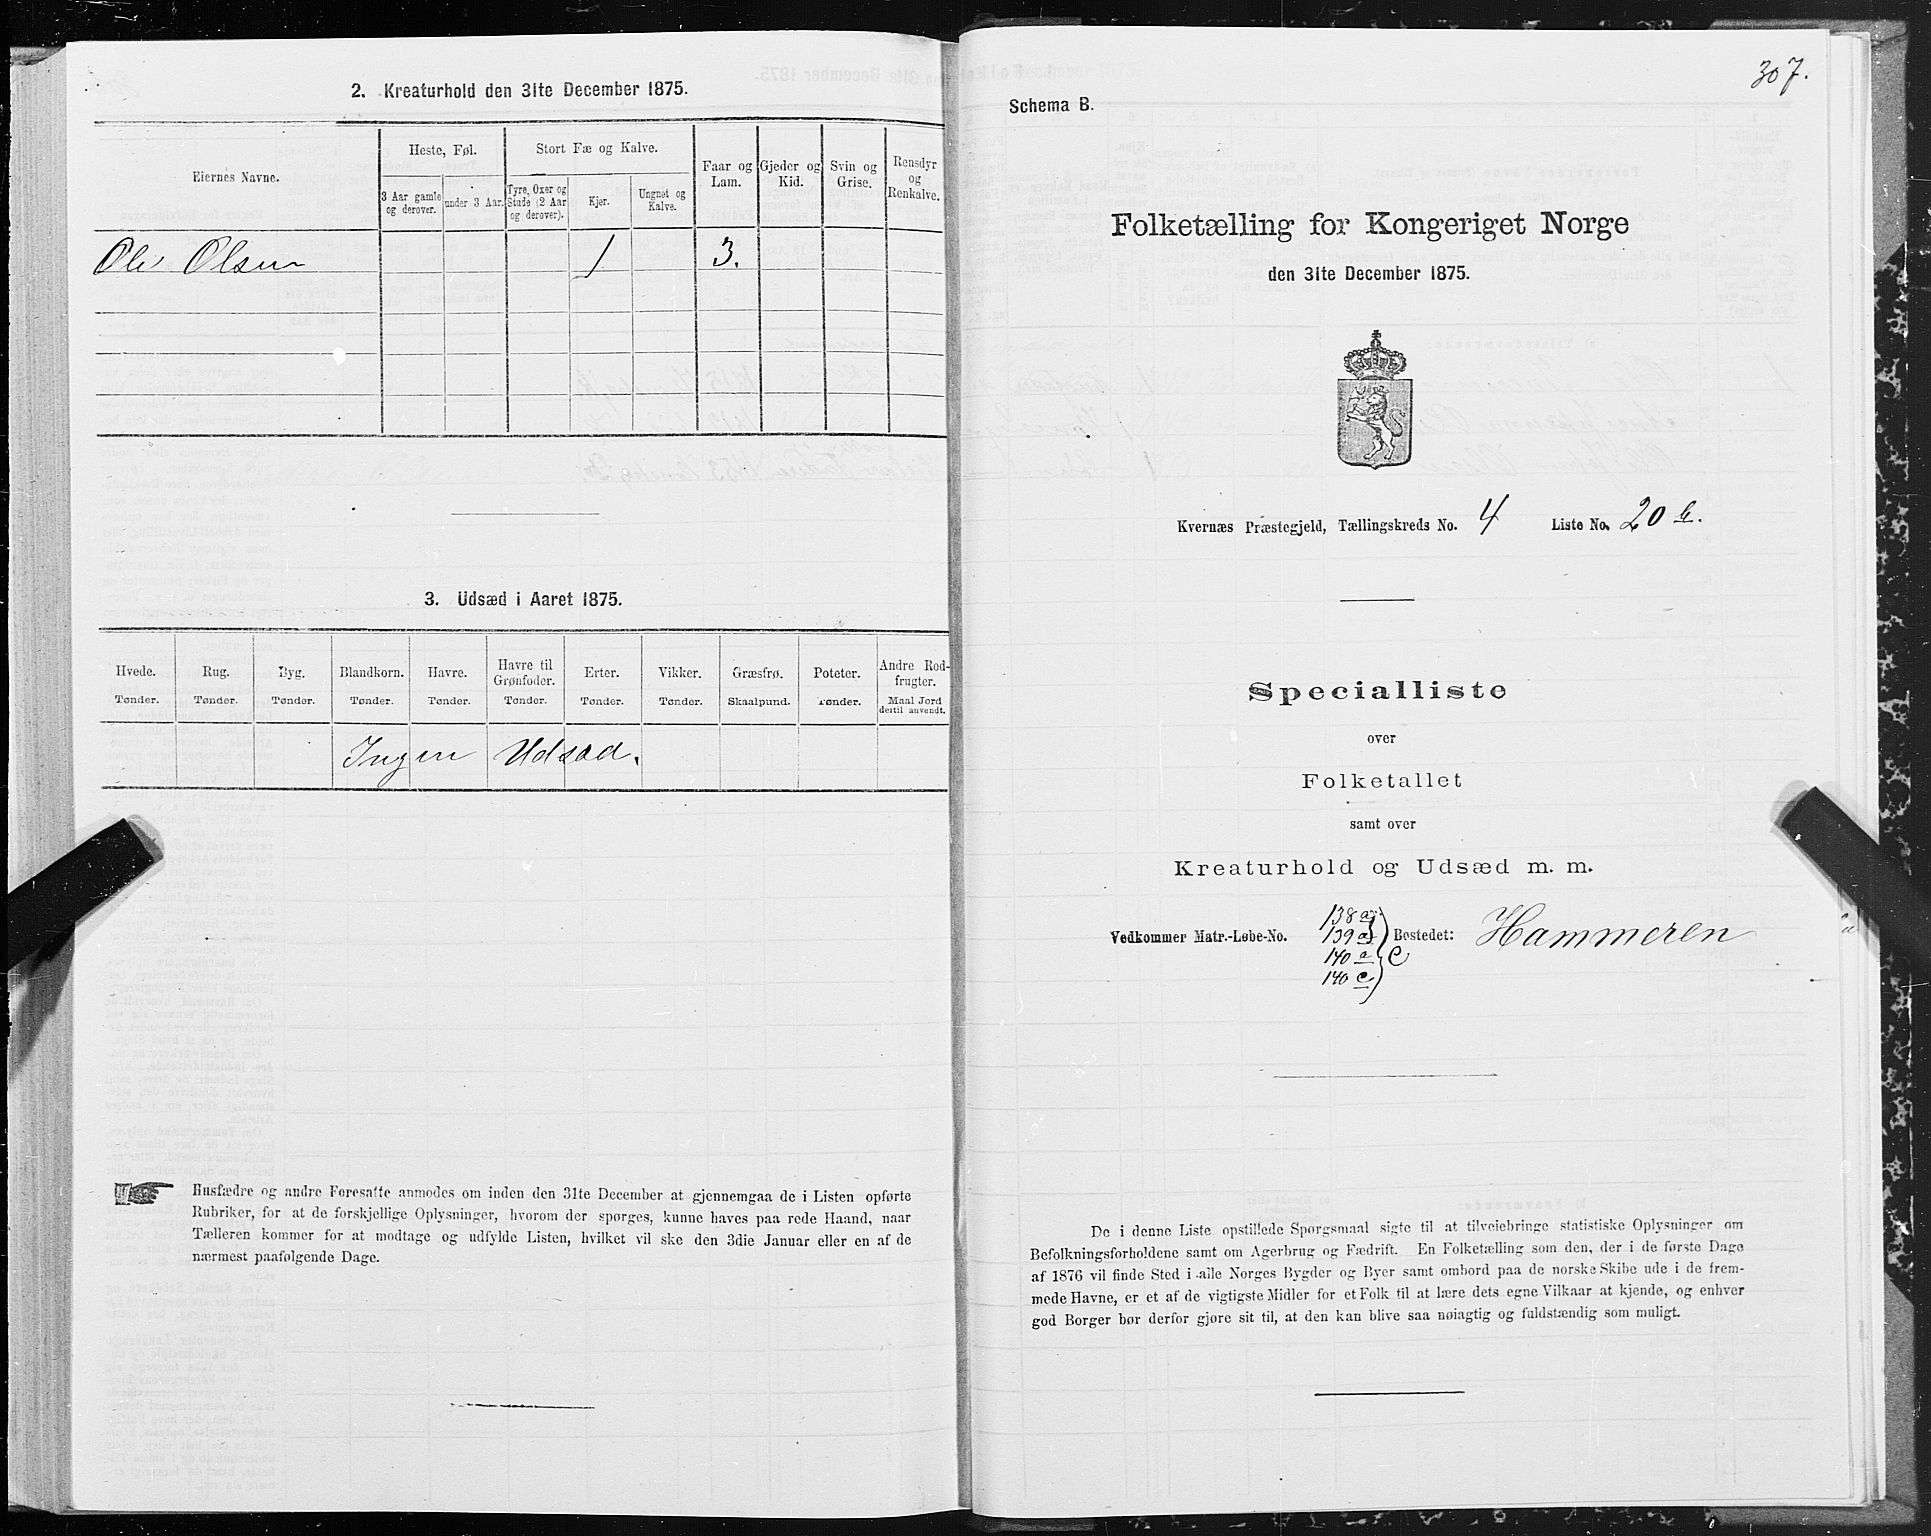 2. Kreaturhold den 31te December 1875.
Eiernes Navne.
Heste, Føl.
Stort Fæ og Kalve.
Faar og Lam.
Gjeder og Kid.
Svin og Grise.
Rensdyr og Renkalve.
3 Aar gamle og derover.
under 3 Aar.
Tyre, Oxer og Stude (2 Aar og derover).
Kjer.
Ungnøt og Kalve.
Ole Olsen 1 3.
3. Udsæd i Aaret 1875.
Hvede. Rug. Byg. Blandkorn. Havre. Havre til Grønfoder. Erter. Vikker. Græsfrø. Poteter. Andre Rodfrugter.
Tønder. Tønder. Tønder. Tønder. Tønder. Tønder. Tønder. Tønder. Skaalpund. Tønder. Maal Jord dertil anvendt.
Ingen Udsæd.
Husfædre og andre Foresatte anmodes om inden den 31te December at gjennemgaa de i Listen opførte
Rubriker, for at de forskjellige Oplysninger, hvorom der spørges, kunne haves paa rede Haand, naar
Tælleren kommer for at modtage og udfylde Listen, hvilket vil ske den 3die Januar eller en af de
nærmest paafølgende Dage.
307.
Schema B.
Folketælling for Kongeriget Norge
den 31te December 1875.
Kvernæs Præstegjeld, Tællingskreds No. 4 Liste No. 20 b.
Specialliste
over
Folketallet
samt over
Kreaturhold og Udsæd m. m.
Vedkommer Matr.-Løbe-No. 138 a 139 a 140 a 140 c Bostedet: Hammeren
De i denne Liste opstillede Spørgsmaal sigte til at tilveiebringe statistiske Oplysninger om
Befolkningsforholdene samt om Agerbrug og Fædrift. En Folketælling som den, der i de første Dage
af 1876 vil finde Sted i alle Norges Bygder og Byer samt ombord paa de norske Skibe ude i de frem-
mede Havne, er et af de vigtigste Midler for et Folk til at lære dets egne Vilkaar at kjende, og enhver
god Borger bør derfor gjøre sit til, at den kan blive saa nøiagtig og fuldstændig som muligt.